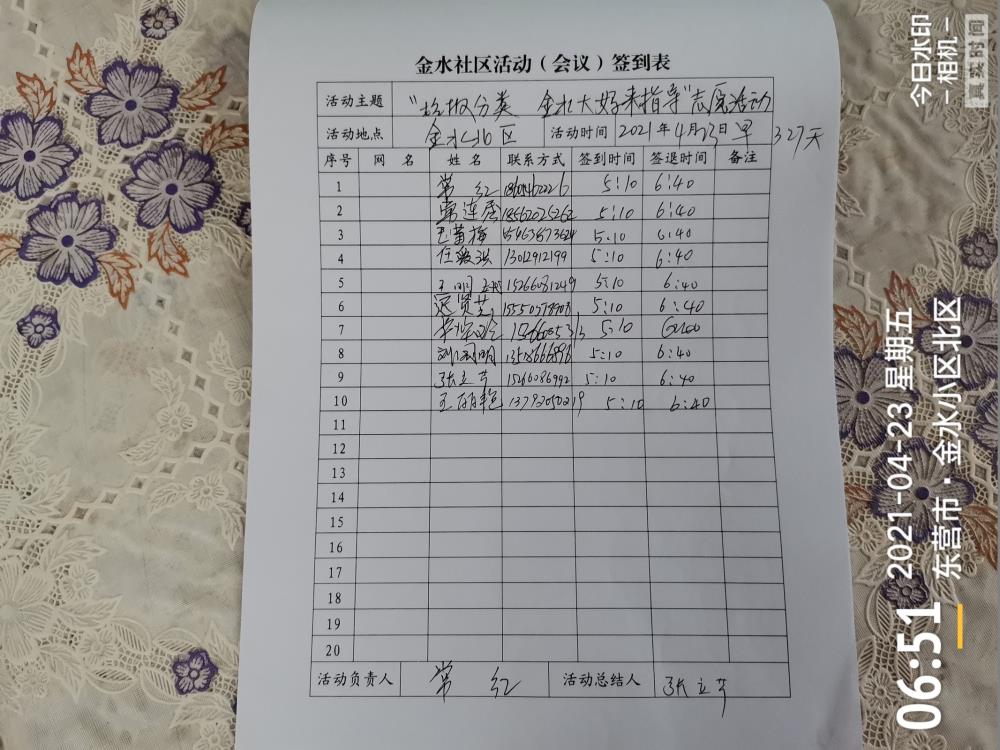 金水社区活动（会议）签到表
活动主题 “垃圾分类 金水大妈来指导”志愿活动
活动地点 金水北区 活动时间 2021年4月23日早 327天
序号 网名 姓名 联系方式 签到时间 签退时间 备注
1 常红 5:10 6:40
2 常连居 18562025262 5:10 6:40
3 5:10 6:40
4 13012912199 5:10 6:40
5 王明 15266081249 5:10 6:40
6 寇贤芝 5:10 6:40
7 5:10
8 5:10 6:40
9 张立芹 15266086992 5:10 6:40
10 王丽艳 13792050219 5:10 6:40
11
12
13
14
15
16
17
18
19
20
活动负责人 常红 活动总结人 张立芹
06:51
2021-04-23 星期五
东营市·金水小区北区
今日水印
-相机-
真实时间